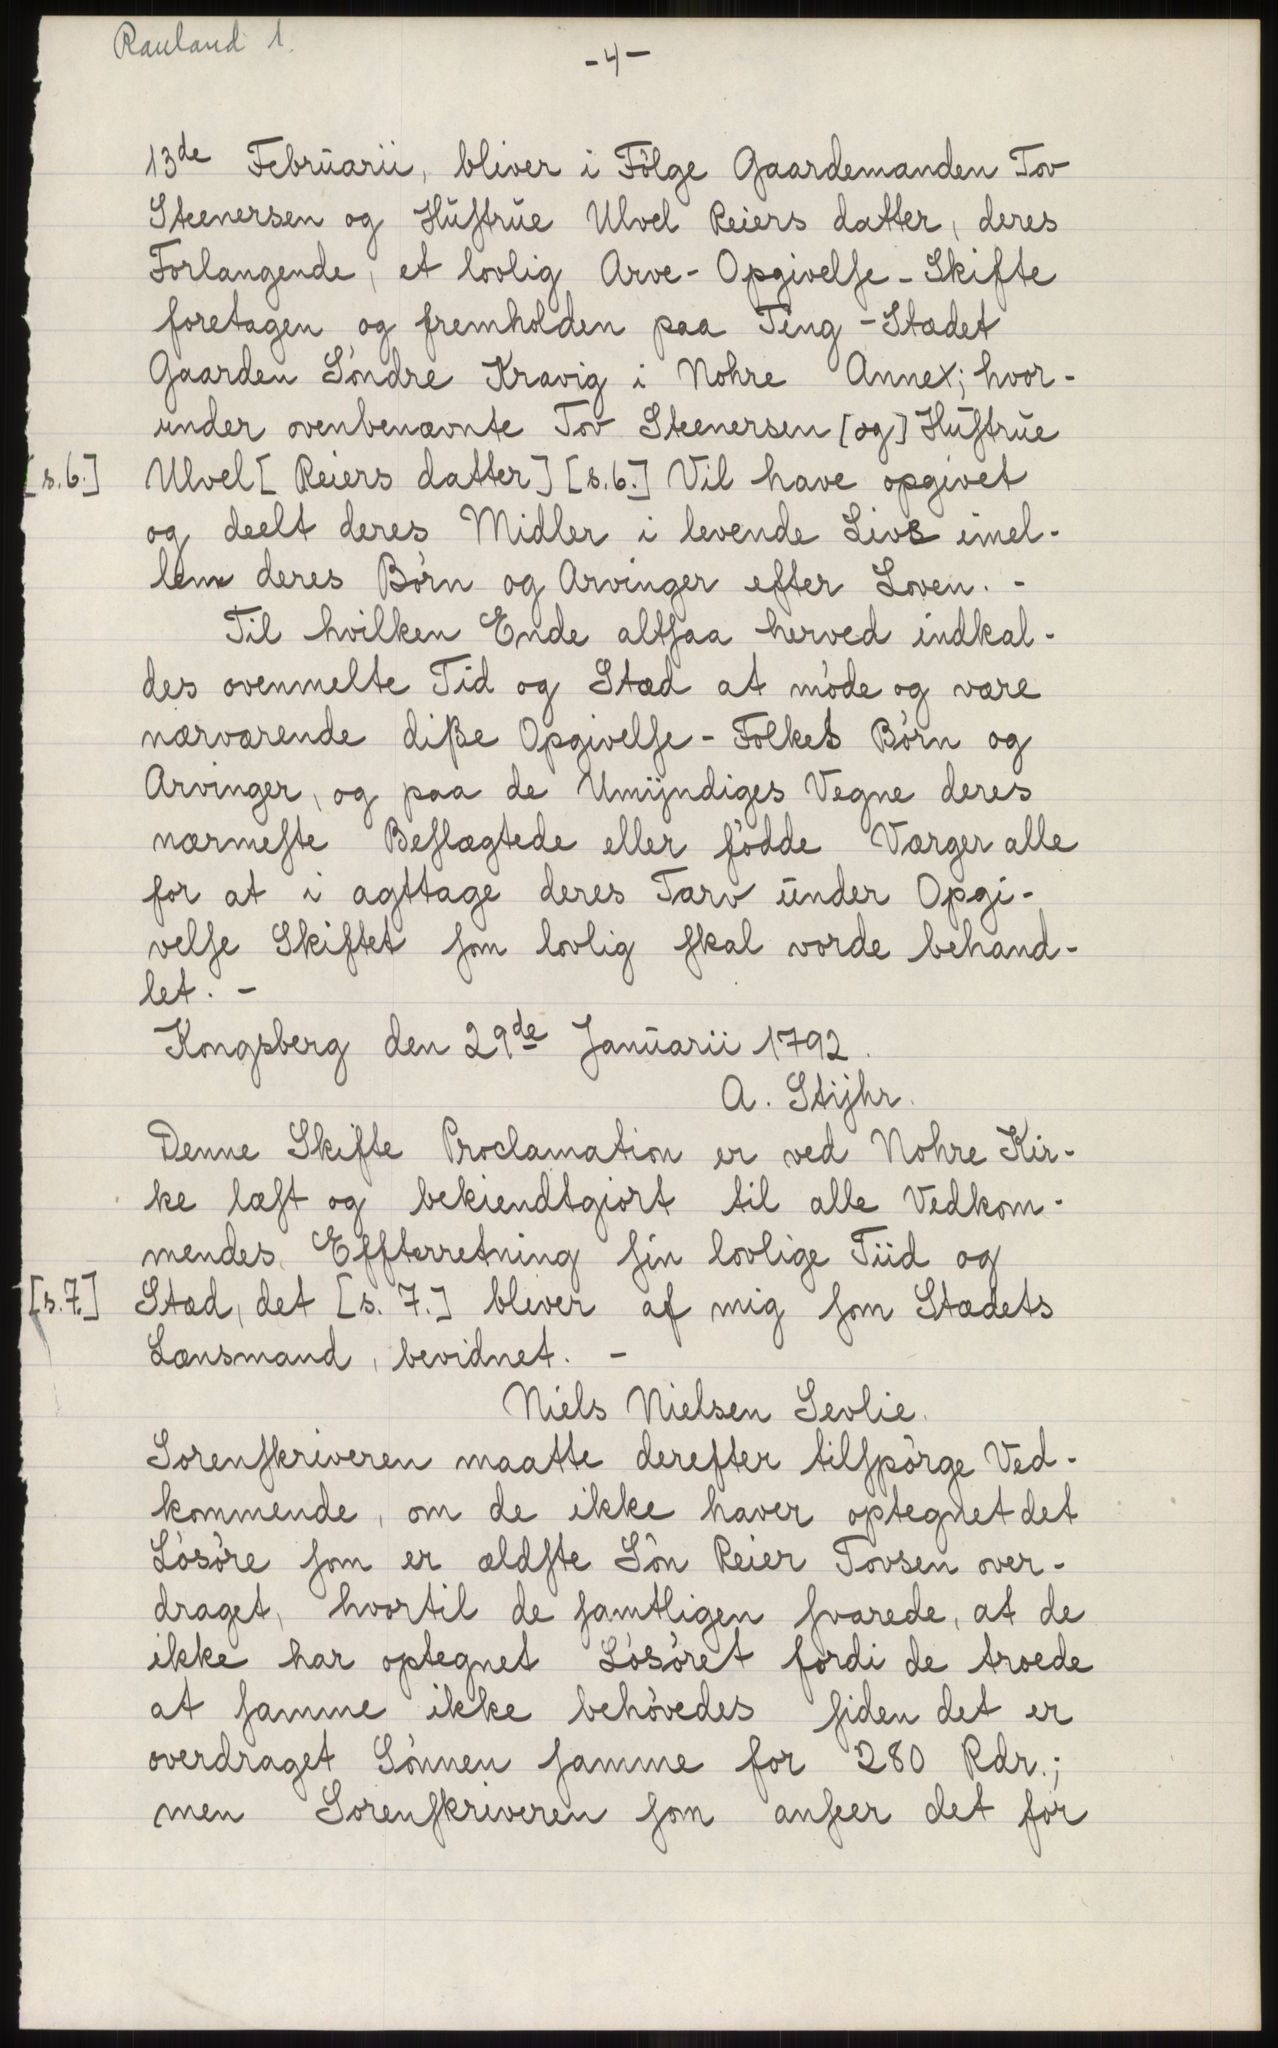 Rauland 1.
-4-
13de Februarii, bliver i Fölge Gaardemanden Tov
Steenersen og Hustrue Ulvel Reiers datter, deres
Forlangende, et lovlig Arve-Opgivelse-Skifte
foretagen og fremholden paa Ting-Stædet
Gaarden Söndre Kravig i Nohre Annex; hvor-
under ovenbenævnte Tov Steenersen [og] Hustrue
[s.6.] Ulvel [Reiers datter] [s.6.] Vil have opgivet
og deelt deres Midler i levende Live imel-
lem deres Börn og Arvinger efter Loven. -
Til hvilken Ende altsaa herved indkal-
des ovenmelte Tid og Stæd at möde og være
nærværende diße Opgivelse-Folkes Börn og
Arvinger, og paa de Umijndiges Vegne deres
nærmeste Beslægtede eller födde Værger alle
for at i agttage deres Tarv under Opgi-
velse Skiftet som lovlig skal vorde behand-
let. -
Kongsberg den 29de Januarii 1792.
A. Stijhr.
Denne Skifte Proclamation er ved Nohre Kir-
ke læst og bekiendtgiort til alle Vedkom-
mendes Effterretning sin lovlige Tiid og
[s.7.] Stæd, det [s. 7.] bliver af mig som Stædets
Lænsmand, bevidnet. -
Niels Nielsen Sevlie.
Sorenskriveren maatte derefter tilspörge Ved-
kommende, om de ikke haver optegnet det
Lösöre som er ældste Sön Reier Tovsen over-
draget, hvortil de samtligen svarede, at de
ikke har optegnet Lösöret fordi de troede
at samme ikke behövedes siden det er
overdraget Sönnen samme for 280 Rdr.;
men Sorenskriveren som anseer det for